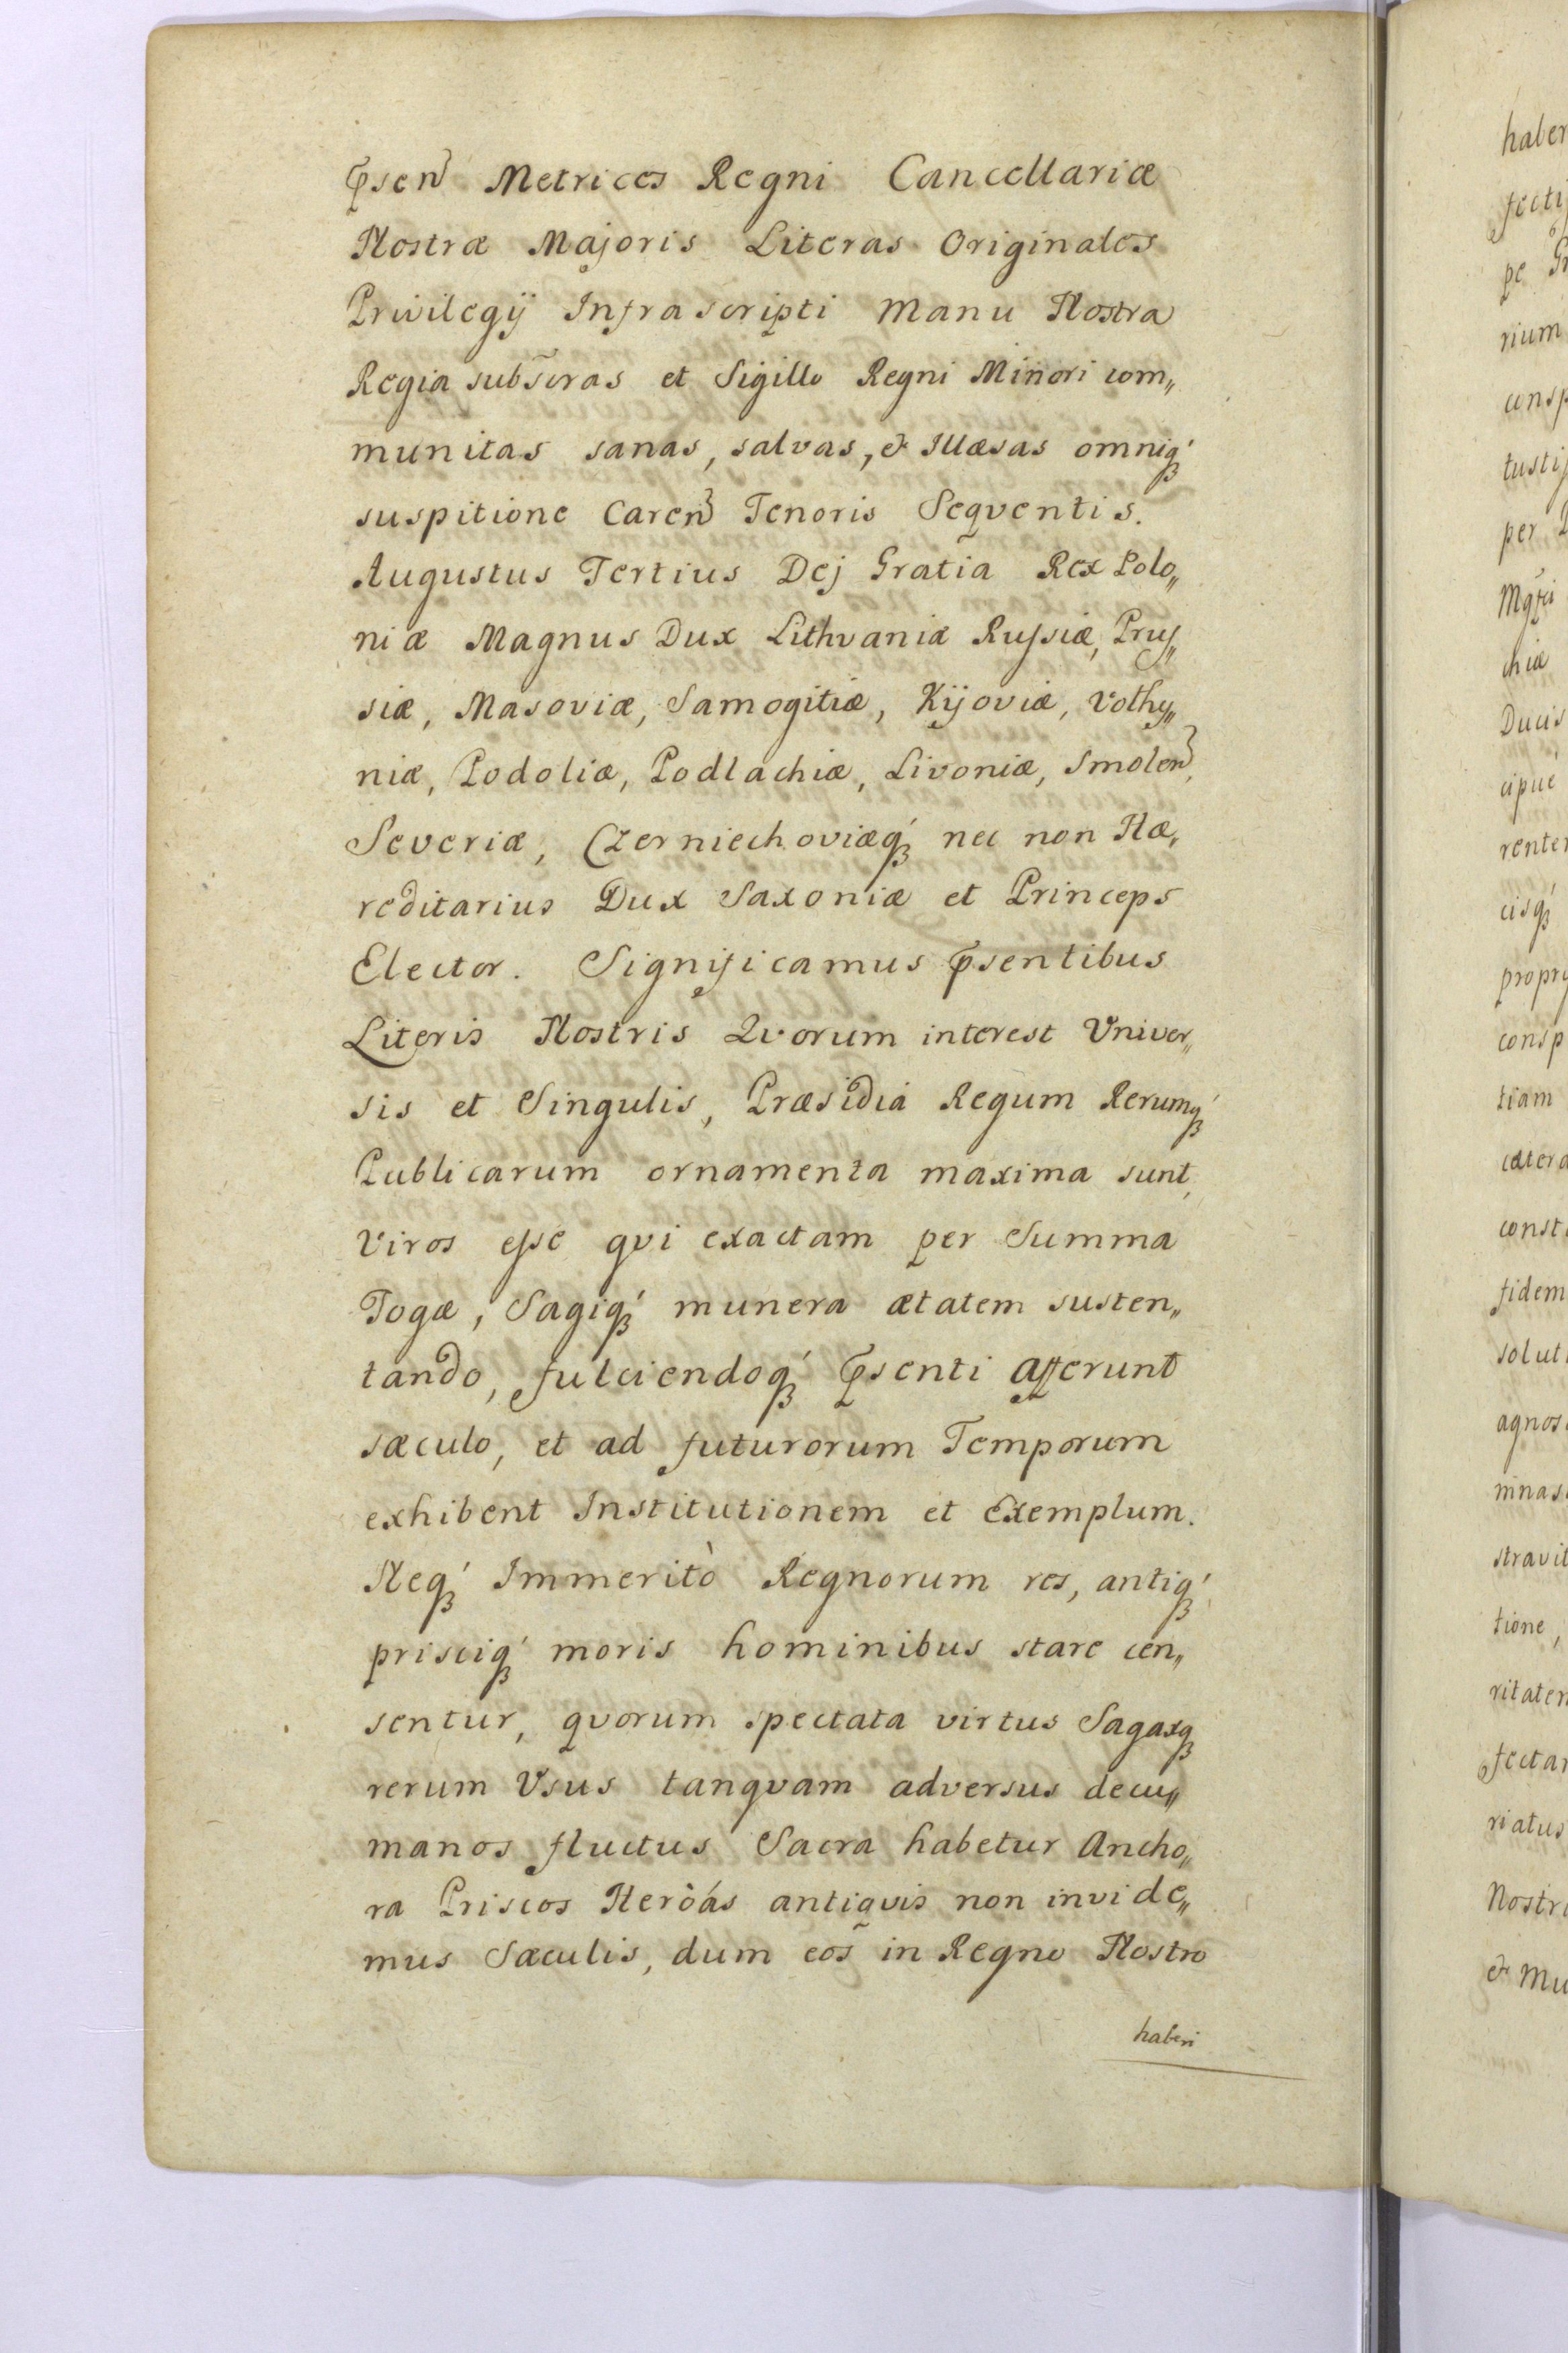 p̄sen̄ Metrices Regni Cancellariæ
Nostræ Majoris Literas Originales
Privilegij Infrascripti Manu Nostra
Regia subs̄cras et Sigillo Regni Minori com„
munitas sanas, salvas, & Illæsas omniq́ꝫ
suspitione Caren̄ Tenoris Seqventis.
Augustus Tertius Dej Gratia Rex Polo„
niæ Magnus Dux Lithvaniæ Russiæ, Prus„
siæ, Masoviæ, Samogitiæ, Kijoviæ, Volhy„
niæ, Podoliæ, Podlachiæ, Livoniæ, Smolen̄,
Severiæ, Czerniechoviæq́ꝫ nec non Hæ„
reditarius Dux Saxoniæ et Princeps
Elector. Significamus p̄sentibus
Literis Nostris Qvorum interest Univer„
sis et Singulis, Præsidia Regum Rerumq́ꝫ
Publicarum ornamenta maxima sunt,
Viros esse qvi exactam per Summa
Togæ, Sagiq́ꝫ munera ætatem susten„
tando, fulciendoq́ꝫ p̄senti afferunt
sæculo, et ad futurorum Temporum
exhibent Institutionem et Exemplum.
Neq́ꝫ Immeritò Regnorum res, antiq́ꝫ,
prisciq́ꝫ moris hominibus stare cen„
sentur, qvorum spectata virtus Sagaxqꝫ
rerum Usus tanqvam adversus decu„
manos fluctus Sacra habetur Ancho„
ra Priscos Heròás antiqvis non invide„
mus Sæculis, dum eos̃ in Regno Nostro
haberi